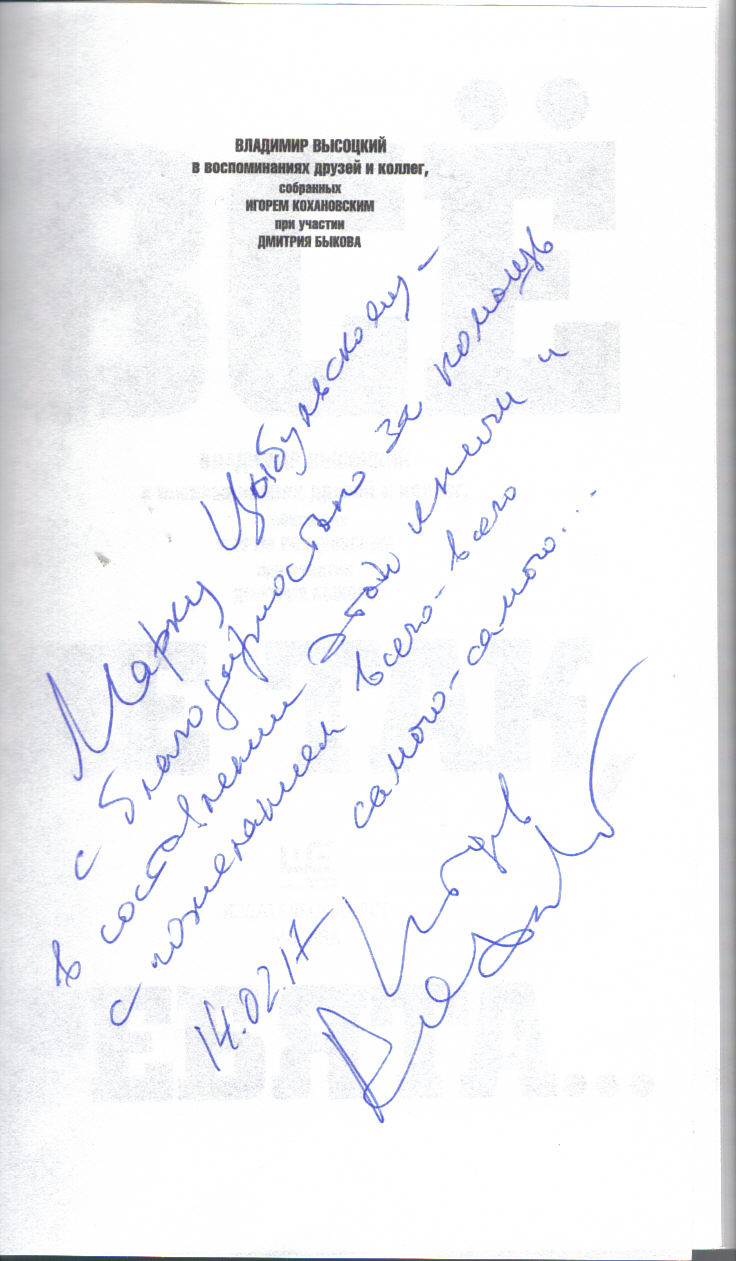 ВЛАДИМИР ВЫСОЦКИЙ
в воспоминаниях друзей и коллег,
собранных
ИГОРЕМ КОХАНОВСКИМ
при участии
ДМИТРИЯ БЫКОВА
Марку Цыбульскому –
с благодарностью за помощь
в составлении этой книги и
с пожеланием всего-всего
самого-самого...
14.02.17
Игорь